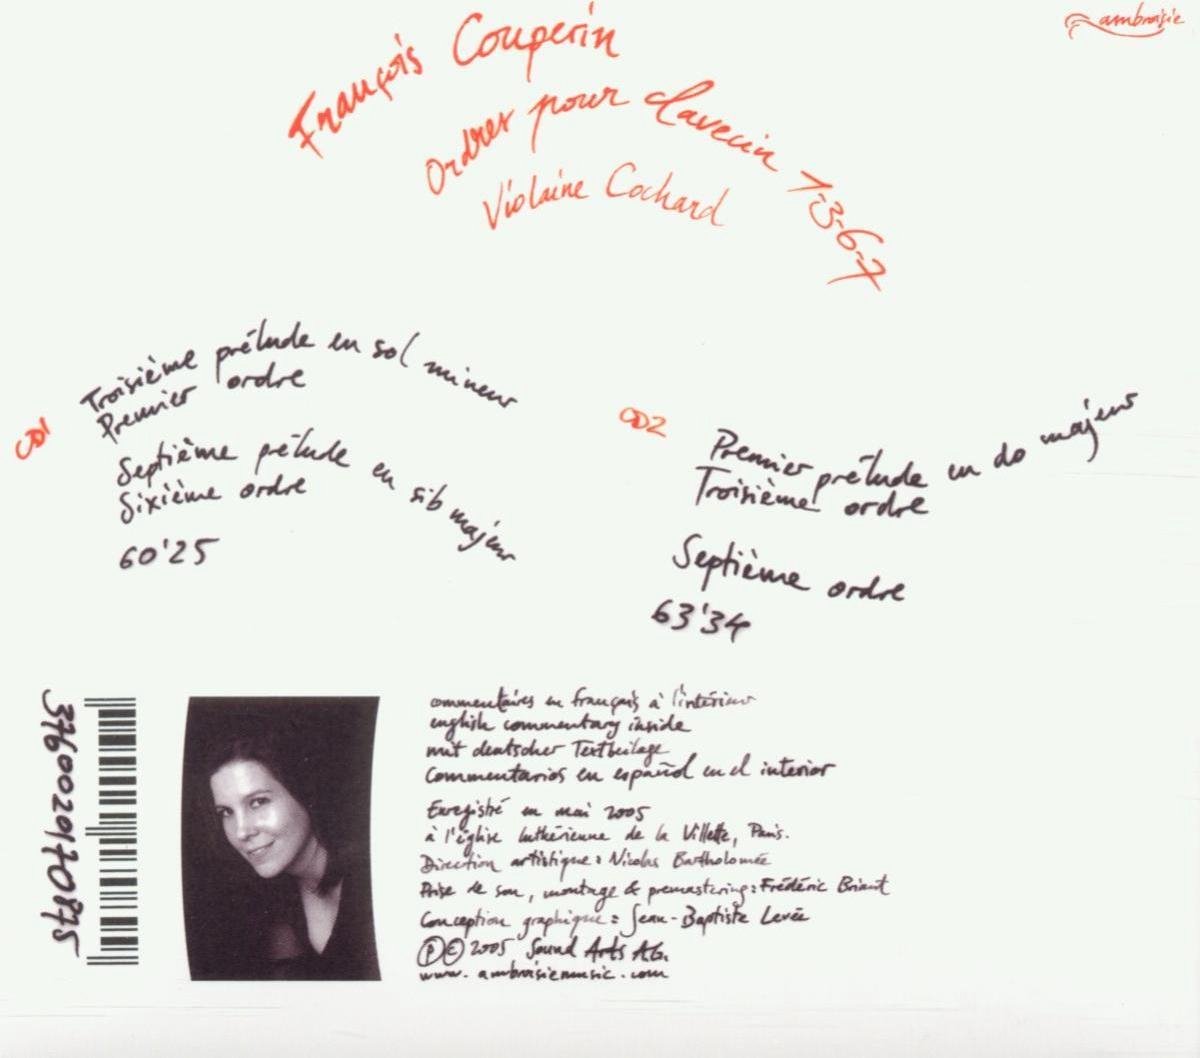 ambroisie
François Couperin
Ordres pour clavecin 1-3-6-7
Violaine Cochard
CD1
Troisième prélude en sol mineur
Premier ordre
Septième prélude en sib majeur
Sixième ordre
60'25
CD2
Premier prélude en do majeur
Troisième ordre
Septième ordre
63'34
3760020170875
commentaires en français à l'intérieur
english commentary inside
mit deutscher Textbeilage
commentarios en español en el interior
Enregistré en mai 2005
à l'église luthérienne de la Villette, Paris.
Direction artistique: Nicolas Bartholomée
Prise de son, montage & premastering: Frédéric Briant
Conception graphique: Jean-Baptiste Levée
Ⓟ © 2005 Sound Arts AG.
www.ambroisiemusic.com